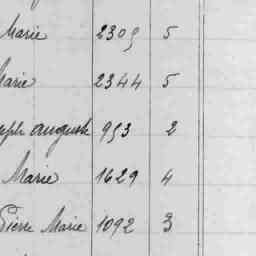 Marie 2305 5
Marie 2344 5
auguste 953 2
Marie 1629 4
Pierre Marie 1092 3